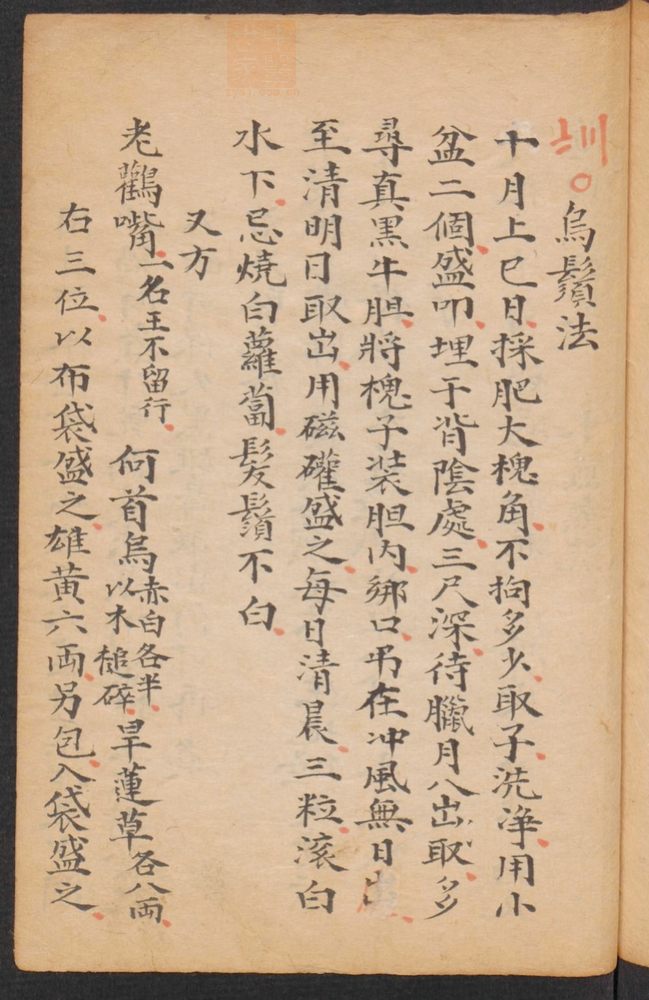 烏鬚法
十月上巳日採肥大槐角不拘多少取子洗淨用小
盆二個盛叩埋于背陰處三尺深待臘月八出取多
尋真黑牛胆將槐子装胆内綁口弔在冲風無日
至清明日取出用磁礶盛之每日清晨三粒滚白
水下忌燒白蘿蔔髮鬚不白
又方
老鸛嘴一名王不留行 何首烏赤白各半以木槌碎旱蓮草各八両
右三位以布袋盛之雄黄六両另包入袋盛之